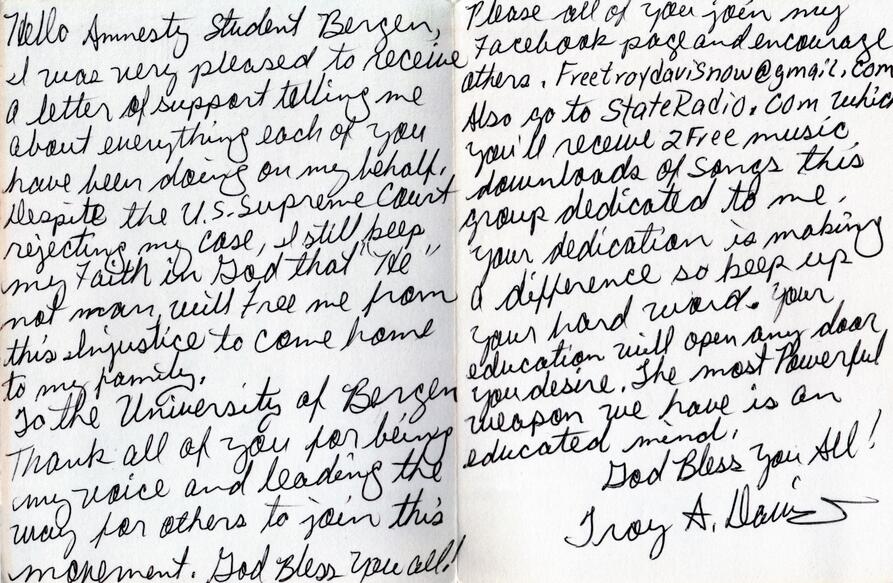 Hello Amnesty Student Bergen,
I was very pleased to receive
a letter of support telling me
about everything each of you
have been doing on my behalf.
Despite the U.S. Supreme Court
rejecting my case, I still keep
my Faith in God that "He"
not man, will Free me from
this Injustice to come home
to my family.
To the University of Bergen
Thank all of you for being
my voice and leading the
way for others to join this
movement. God Bless You all!
Please all of you join my
Facebook page and encourage
others. Freetroydavisnow@gmail.com
Also go to StateRadio.com which
you'll receive 2 Free music
downloads of Songs this
group dedicated to me.
Your dedication is making
a difference so keep up
your hard word. Your
education will open any door
you desire. The most Powerful
weapon we have is an
educated mind.
God Bless You All!
Troy A. Davis